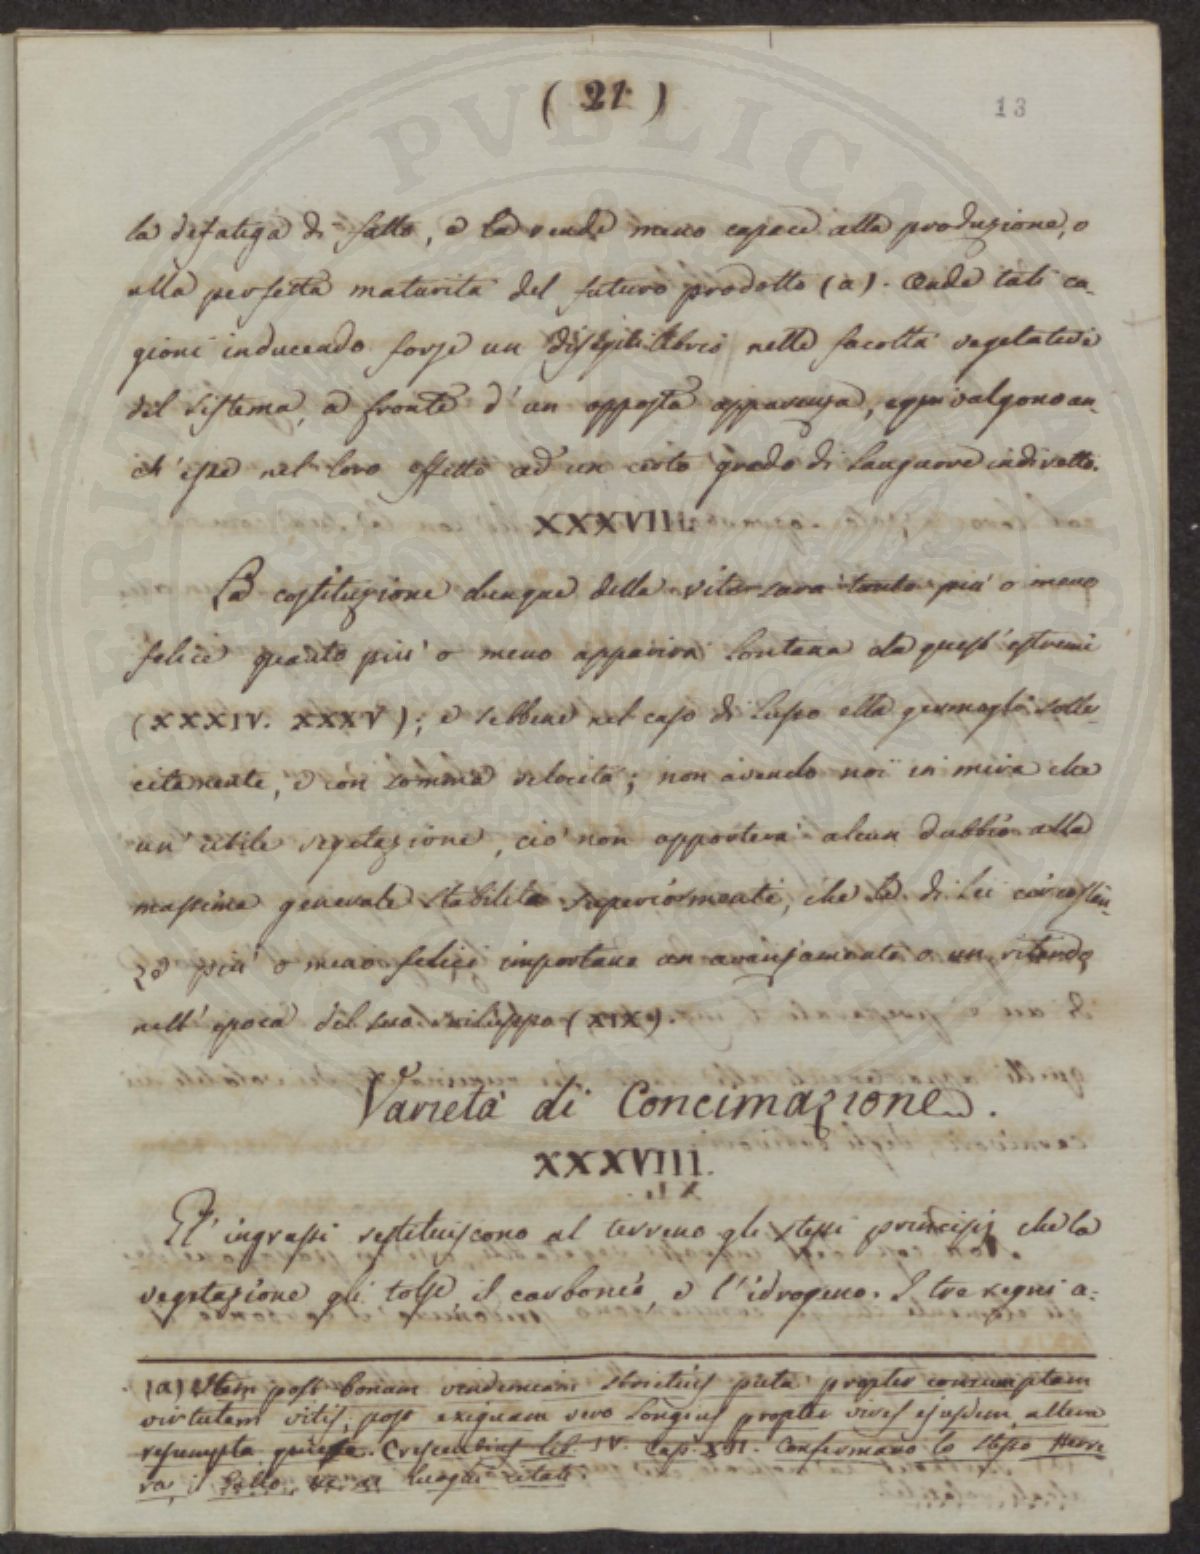 ( 21 )
13
la defatiga di fatto, e la rende meno capace alla produzione, o
alla perfetta maturità del futuro prodotto (a). Onde tali ca-
gioni inducendo forse un disequilibrio nelle facoltà vegetative
del sistema, a fronte d'un opposta apparenza, equivalgono an-
ch'esse nel loro effetto ad un certo grado di languore indiretto.
XXXVIII.
La costituzione dunque della vite sarà tanto più o meno
felice quanto più o meno apparirà lontana da quest'estremi
(XXXIV. XXXV); e sebbene nel caso di lusso ella germogli solle-
citamente, e con somma velocità; non avendo noi in mira che
un'utile vegetazione, ciò non apporterà alcun dubbio alla
massima generale stabilita superiormente, che le di lei circostan-
ze più o meno felici importano un avanzamento o un ritardo
nell'epoca del suo sviluppo (XIX).
Varietà di Concimazione.
XXXVIII.
Gl'ingrassi restituiscono al terreno gli stessi principj che la
vegetazione gli tolse il carbonio, e l'idrogeno. I tre regni a-
(a) Item post bonam vindemiam strictius puta propter consumptam
virtutem vitis, post exiguam vero longius propter vires ejusdem altera
resumpta Crescentius lib. IV. Cap. XII. Confermano lo stesso Herre
ra, Gallo luoghi citati